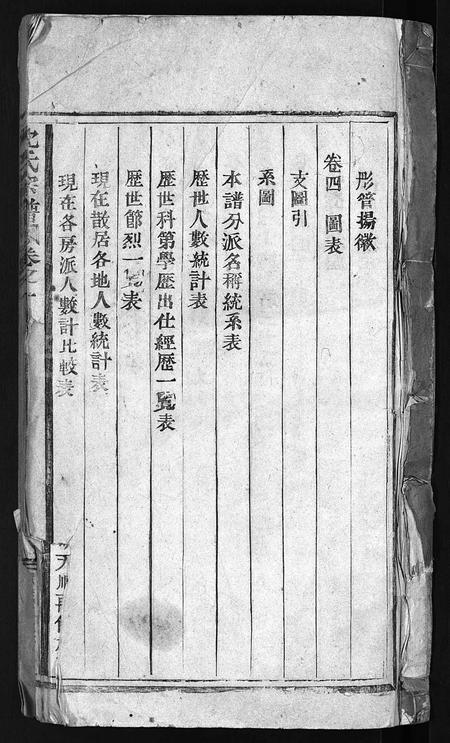 彤管揚徽
卷四 圖表
支圖引
系圖
本譜分派名稱統系表
歴世人數統計表
歴世科第學歴出仕經歴一覽表
歴世節烈一覽表
現在散居各地人數統計表
現在各房派人數計比較表
氏宗譜 卷之一